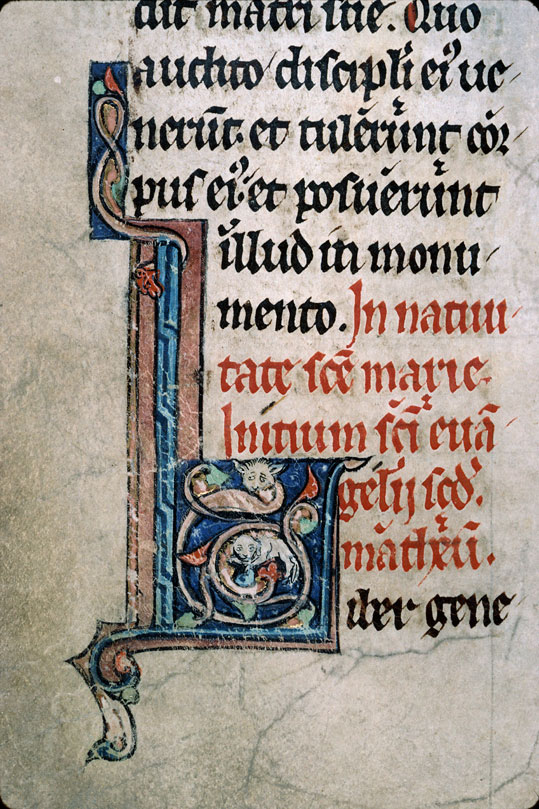 dit matri sue. Quo
audito discipli eiꝰ ue
nerūt. et tulērunt cor
pus eiꝰ. et posuērunt
illud in monu
mento. In natiui
tate scē marie.
Initium scī euā
gelij scd'.
māthēū.
L iber gene